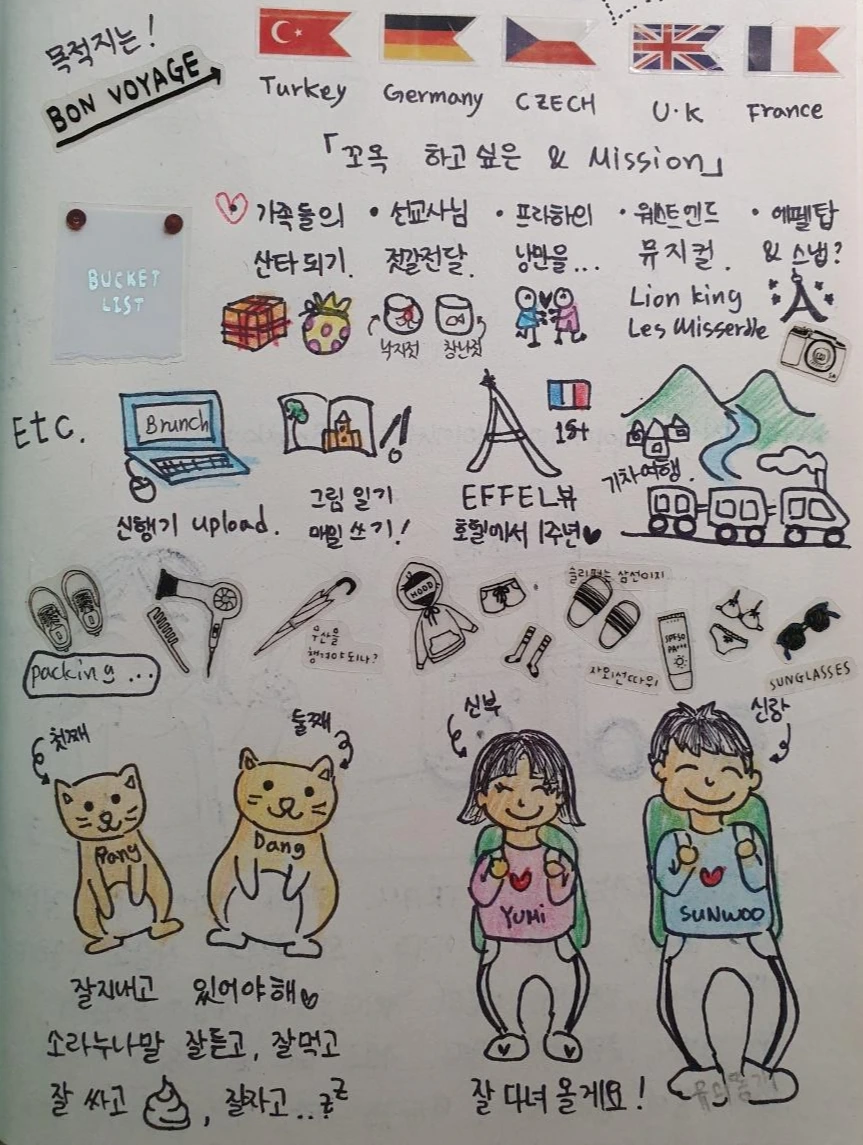 목적지는!
BON VOYAGE
Turkey
Germany
CZECH
U.K
France
「꼬옥 하고싶은 & Mission」
BUCKET
LIST
가족들의
산타되기.
• 선교사님
젓갈전달.
낙지젓
창난젓
• 프라하의
낭만을...
• 웨스트엔드
뮤지컬.
Lion king
Les Misserdle
• 에펠탑
& 스냅?
Etc.
Brunch
신행기 upload.
그림 일기
매일 쓰기!
18+
EFFEL뷰
호텔에서 1주년
기차여행.
packing ...
우산을
챙겨야되나?
HOOD
슬리퍼는 삼선이지
자외선따위
SPF50
PA+++
SUNGLASSES
첫째
둘째
신부
신랑
Pang
Dang
YUMi
SUNWOO
잘지내고 있어야해
소라누나말 잘듣고, 잘먹고
잘 싸고 , 잘자고...zzz
잘 다녀 올게요!